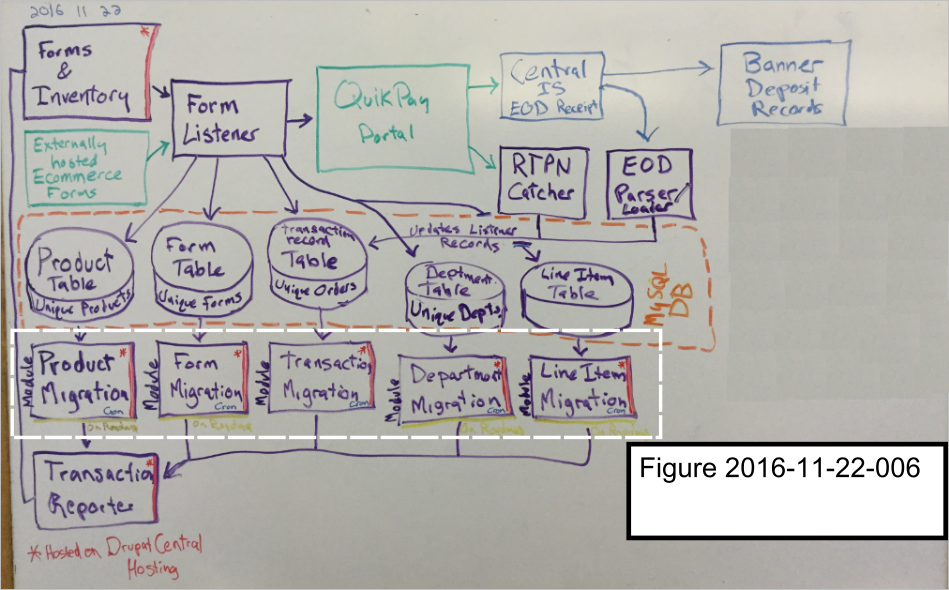 2016 11 22
Forms
&
Inventory
*
Externally
hosted
Ecommerce
Forms
Form
Listener
QuikPay
Portal
Central
IS
EOD Receipt
Banner
Deposit
Records
RTPN
Catcher
EOD
Parser/
Loader
Updates Listener
Records
Product
Table
Unique Products
Form
Table
Unique Forms
Transaction
record
Table
Unique Orders
Deptment
Table
Unique Depts.
Line Item
Table
MySQL
DB
Module
Product *
Migration
Cron
On Roadmap
Module
Form *
Migration
Cron
On Roadmap
Module
Transaction *
Migration
Cron
Module
Department *
Migration
Cron
On Roadmap
Module
Line Item *
Migration
Cron
On Roadmap
Transaction *
Reporter
* Hosted on Drupal Central
Hosting
Figure 2016-11-22-006